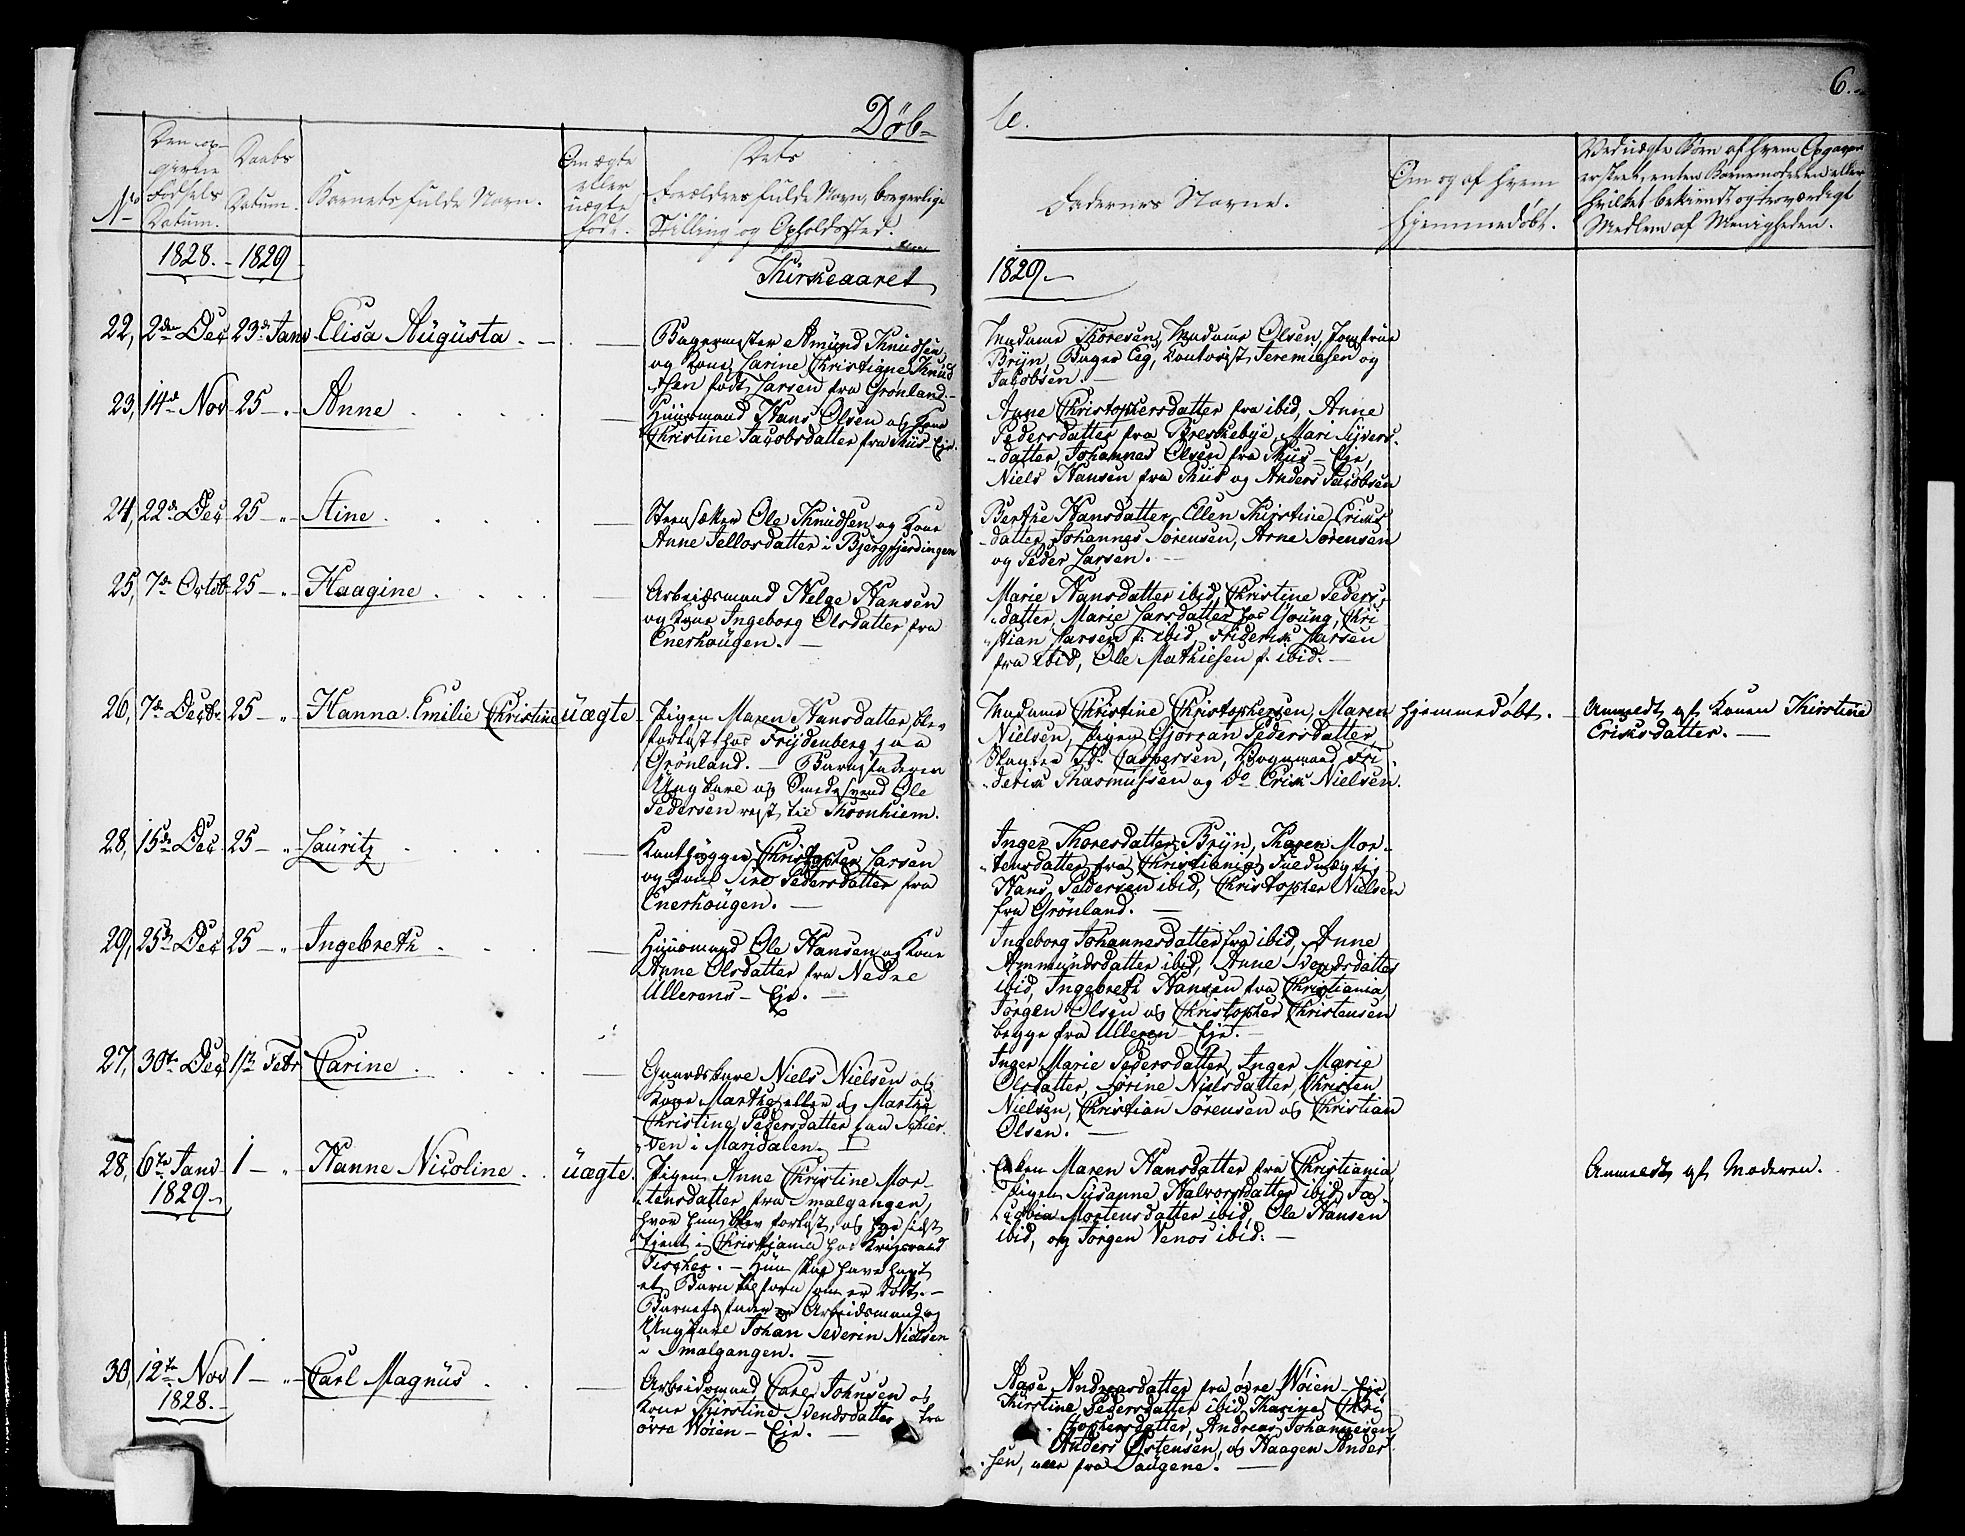 Døb-
te.
6.
No
Den op-
givne
Fødsels
Datum.
Daabs
Datum.
Barnets fulde Navn.
Om ægte
eller
uægte
født.
Dets
Forældres fulde Navn, borgerlige
Stilling og Opholdssted.
Faddernes Navne.
Om og af hvem
hjemmedøbt.
Ved uægte Børn af hvem Opgaven
er skeet, enten Barnemoderen eller
hvilket bekiendt og troværdigt
Medlem af Menigheden.
1828. - 1829
Kirkeaaret
1829.
22, 2den Dec 23de Janv Elisa Augusta
Bagermester Amund Knudsen
og Kone Larine Christiane Knud
-sen født Larsen fra Grønland.
Madame Thoresen, Madame Olsen, Jomfrue
Bryn, Bager Eeg, Contorist Jeremiesen og
Jacobsen.
23, 14de Nov 25 - " - Anne
Huusmand Hans Olsen og Kone
Christine Jacobsdatter fra Huus-Eje.
Anne Christophersdatter fra ibid, Anne
Pedersdatter fra Breskebye, Mari Syvers-
datter, Johannes Olsen fra Huus-Eje,
Niels Hansen fra Huus og Anders Jacobsen
24, 22de Dec 25 - " - Stine
Ole Knudsen og Kone
Anne Tellosdatter i Bjergfjerdingen
Berthe Hansdatter, Ellen Kirstine Eriks
datter, Johannes Sørensen, Arne Sørensen
og Peder Larsen.
25, 7de Octob 25 - " - Haagine
Arbeidsmand Helge Hansen
og Kone Ingeborg Olsdatter fra
Enerhaugen.
Marie Hansdatter ibid, Christine Peders-
datter, Marie Larsdatter hos Young, Chri-
stian Larsen f. ibid, Friderik Larsen
fra ibid, Ole Mathiesen f. ibid.
26, 7de Decbr 25 - " - Hanna Emilie Christine uægte
Pigen Maren Hansdatter blev
forløst hos Frydenberg paa
Grønland. - Barnefaderen
Ungkarl og Smedesvend Ole
Pedersen rejst til Throndhiem.
Madame Christine Christophersen, Maren
Nielsen, Pigen Gjørran Pedersdatter,
Caspersen, Vognmand Fri-
derik Rasmussen og Do Erik Nielsen.
hjemmedøbt.
Anmeldt af Konen Kirstine
Eriksdatter.
28, 15de Dec 25 - " Lauritz
Christopher Larsen
og Kone Sine Pedersdatter fra
Enerhaugen.
Inger Thoresdatter Bryn, Karen Mor-
tensdatter fra Christiania, Fuldmægtig
Hans Pedersen ibid, Christopher Nielsen
fra Grønland.
29, 25de Dec 25 - " - Ingebreth
Huusmand Ole Hansen og Kone
Anne Olsdatter fra Nedre
Ullerens-Eje.
Ingeborg Johannesdatter fra ibid, Anne
Ammundsdatter ibid, Anne Svendsdatter
ibid, Ingebreth Hansen fra Christiania,
Jørgen Olsen og Christopher Christensen
begge fra Ulleren-Eje.
27, 30te Dec 1ste Febr Carine
Gaardskarl Niels Nielsen og
Kone Marthe eller og Marthe
Christine Pedersdatter fra Skier-
ven i Maridalen.
Inger Marie Pedersdatter, Inger Marie
Olsdatter, Sørine Nielsdatter, Christen
Nielsen, Christian Sørensen og Christian
Olsen.
28, 6te Janv 1 - " - Hanne Nicoline uægte.
1829.
Pigen Anne Christine Mor-
tensdatter fra Smalgangen,
hvor hun blev forløst, og har sidst
tjent i Christiania hos Krigsraad
Fischer. - Hun skal have havt
et Barn tilforn som er dødt. -
Barnefader er Arbeidsmand og
Ungkarl Johan Severin Nielsen
i Smalgangen.
Enken Maren Hansdatter fra Christiania,
Pigen Susanne Halvorsdatter ibid, Ja-
cobia Mortensdatter ibid, Ole Hansen
ibid, og Jørgen Venos ibid.
Anmeldt af Moderen.
30, 12te Nov 1 - " - Carl Magnus
1828.
Arbeidsmand Carl Johnsen og
Kone Kirstine Svendsdatter fra
øvre Wøien-Eje.
Aase Andreasdatter fra øvre Wøien-Eje,
Kirstine Pedersdatter ibid, Karine Chri
stophersdatter, Andreas Johannesen
Anders Østensen, og Haagen Ander
sen, alle fra Saugene.